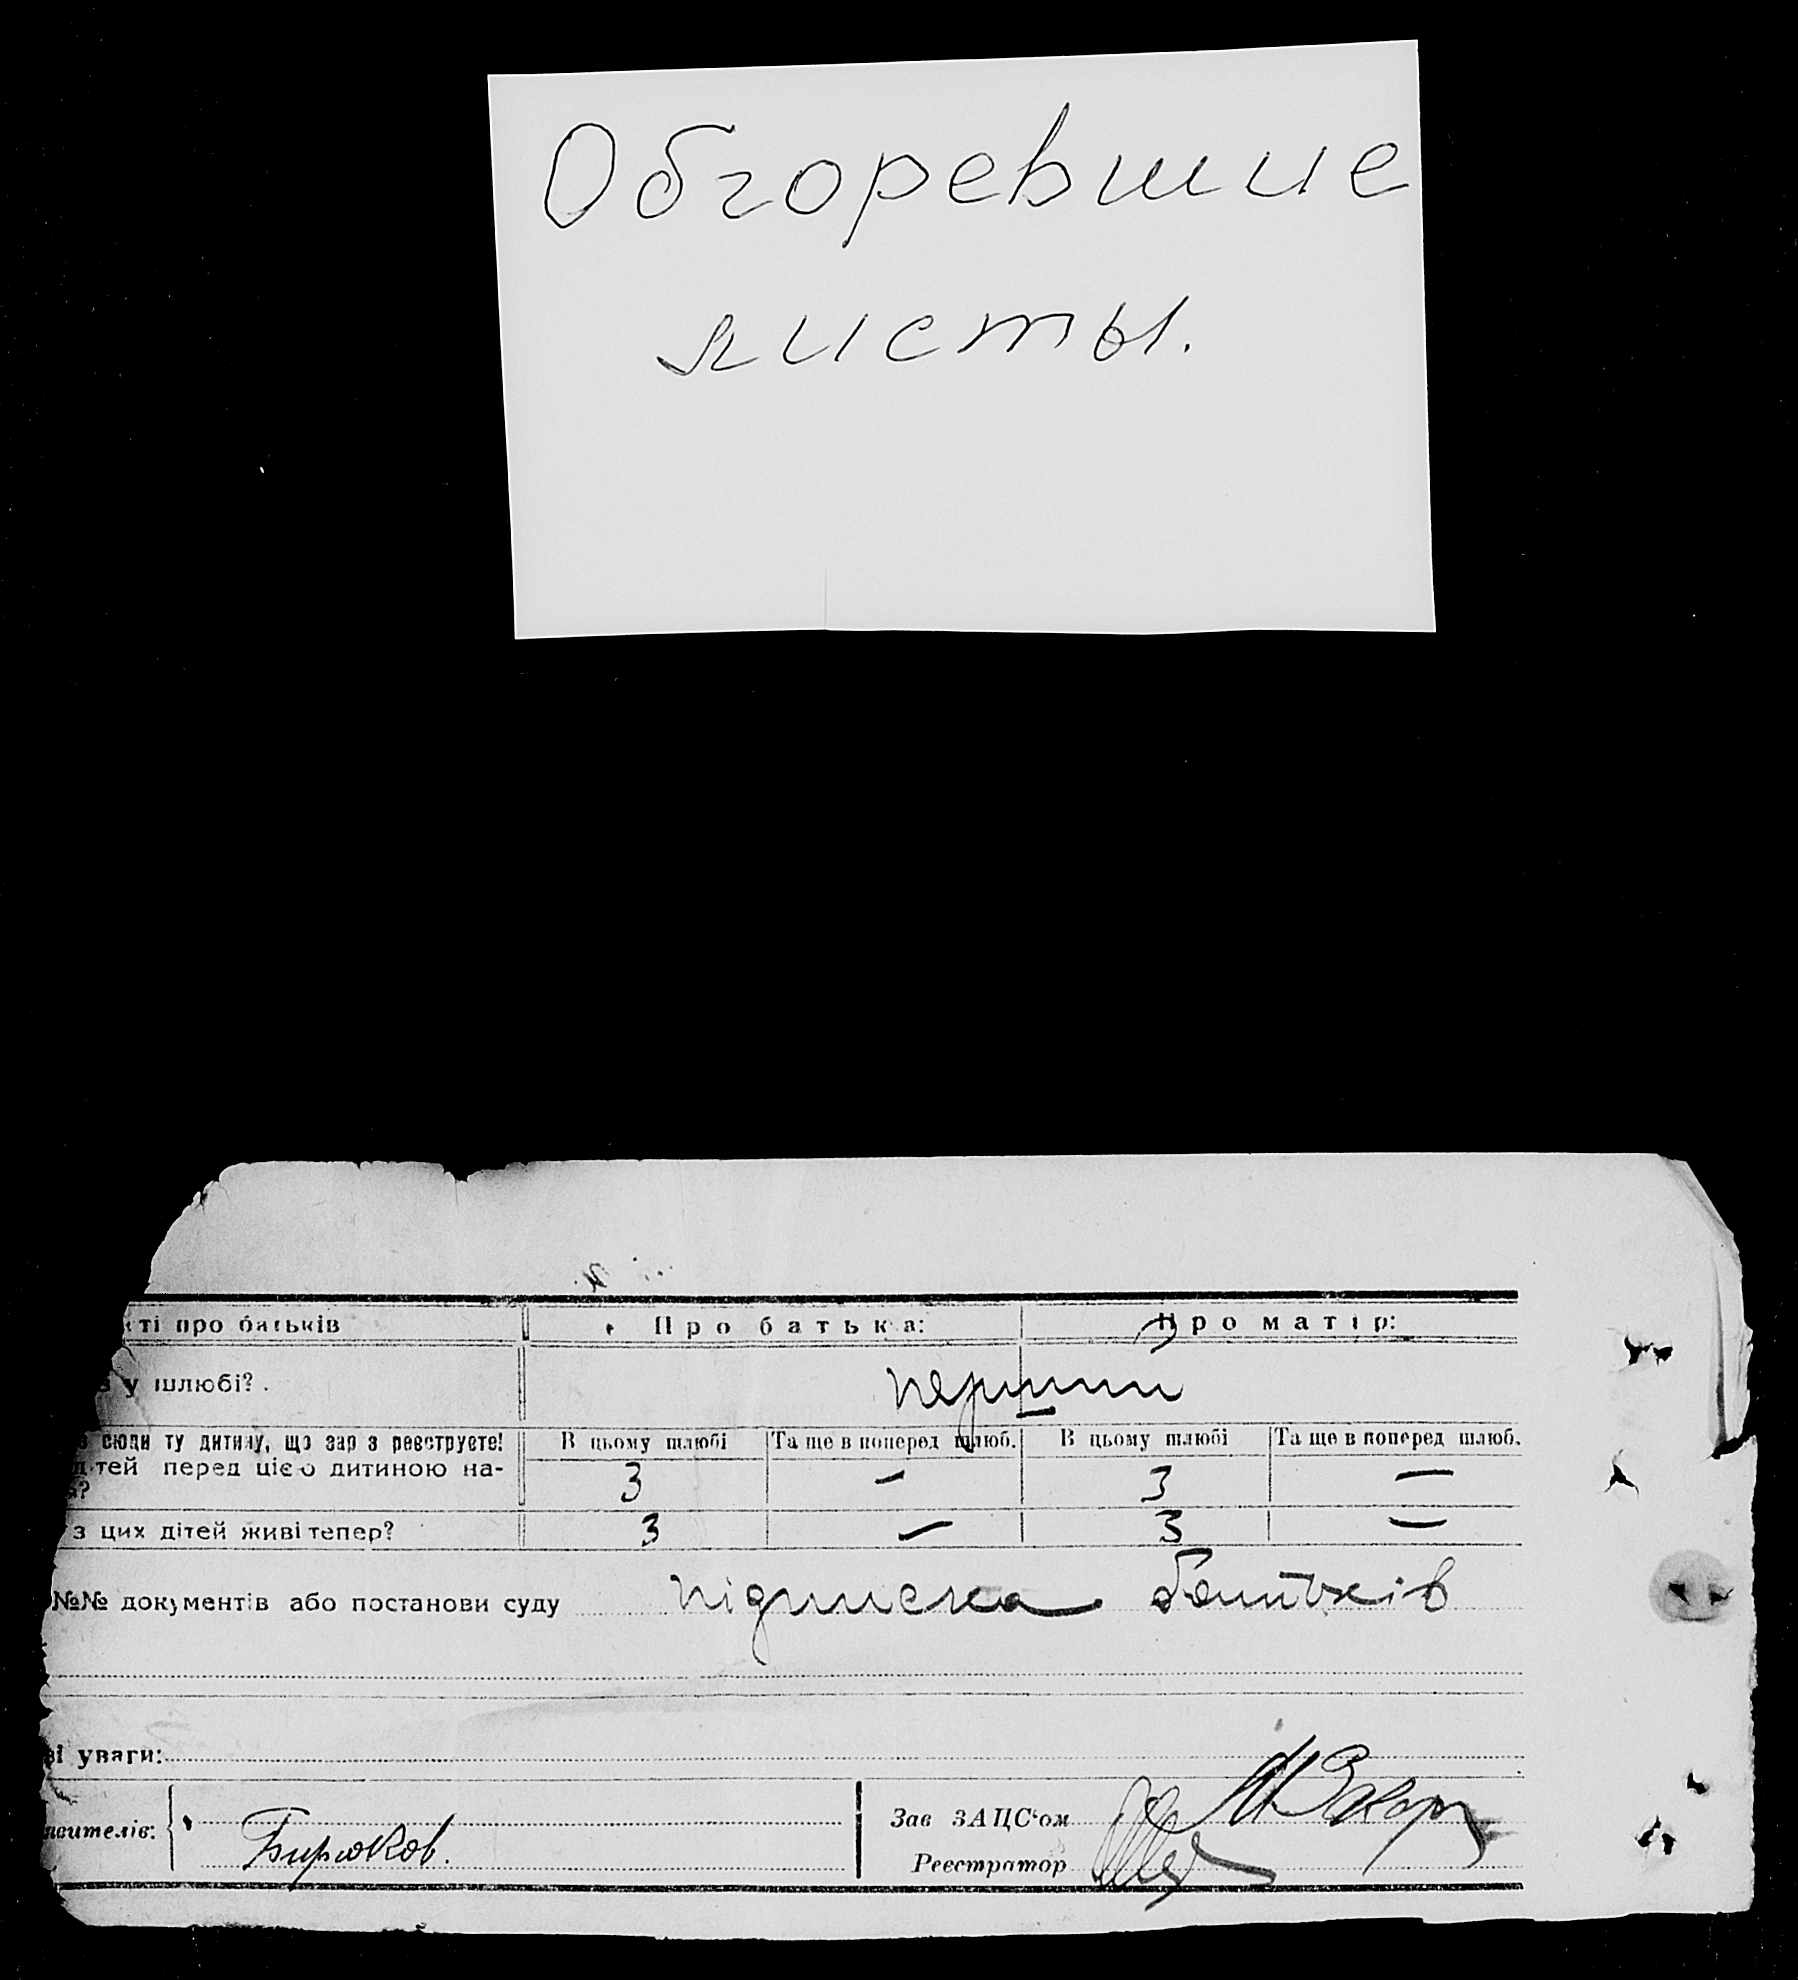 Обгоревшие
листы.
ті про батьків Про батька: Про матір:
у шлюбі? . перший
сюди ту дитину, що зар з реєструєте! В цьому шлюбі Та ще в поперед шлюб. В цьому шлюбі Та ще в поперед шлюб.
тей перед цією дитиною на- 3 — 3 —
?
з цих дітей живі тепер? 3 — 3 —
№№ документів або постанови суду підписка батьків
і уваги:
вителів: Бирюков.
Зав ЗАЦС'ом
Реєстратор